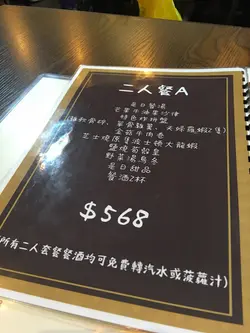 二人餐A
是日餐湯
芒果牛油果沙律
特色炸拼盤
金菇牛肉卷
芝士燒原隻波士頓大龍蝦
鹽燒荀殼皇
野菜湯烏冬
是日甜品
餐酒2杯
$568
(所有二人套餐餐酒均可免費轉汽水或菠蘿汁)